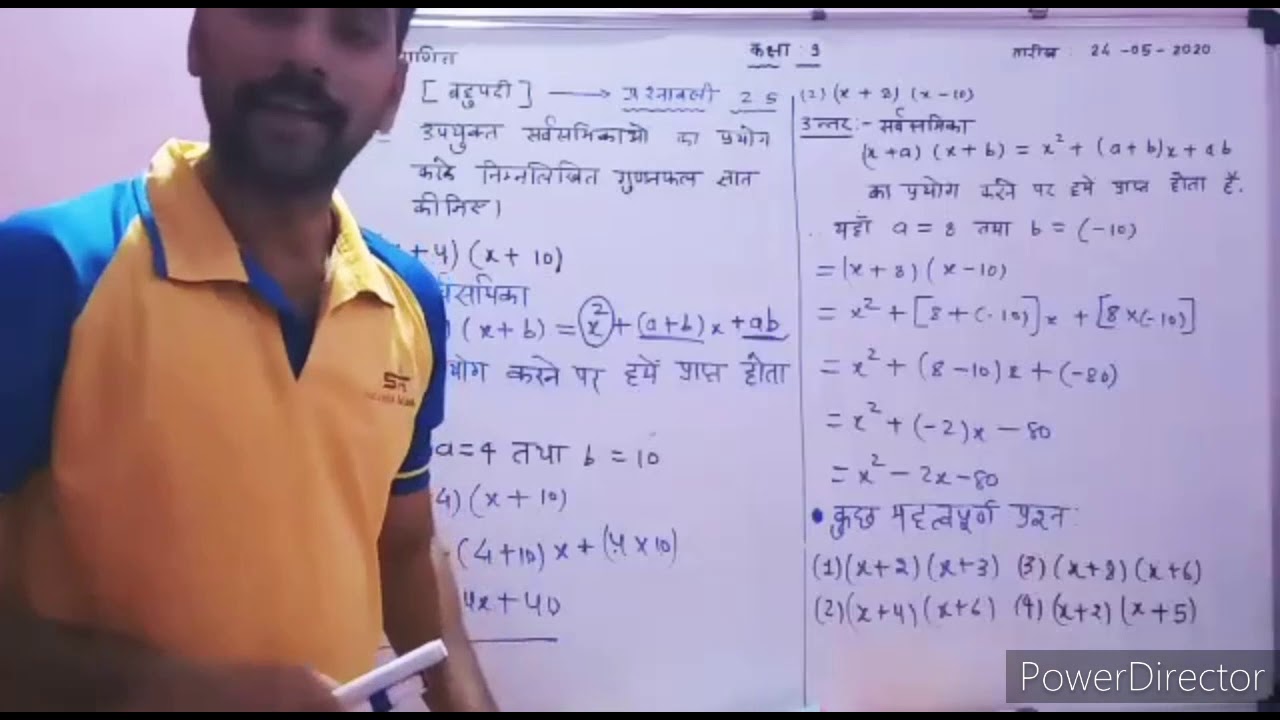 गणित
कक्षा : 9
तारीख : 24-05-2020
[बहुपदी] → प्रश्नावली 2.5
उपयुक्त सर्वसमिकाओ का प्रयोग
निम्नलिखित गुणनफल ज्ञात
कीजिए।
+4) (x + 10)
(x + b) = x² + (a+b) x + ab
करने पर हमें प्राप्त होता
a=4 तथा b = 10
4) (x + 10)
(4+10) x + (4 x 10)
4x + 40
(2) (x + 8) (x - 10)
उत्तर :- सर्वसमिका
(x + a) (x + b) = x² + (a + b)x + ab
का प्रयोग करने पर हमें प्राप्त होता है.
यहाँ a = 8 तथा b = (-10)
= (x + 8) (x - 10)
= x² + [8 + (-10)] x + [8 x (-10)]
= x² + (8 - 10)x + (-80)
= x² + (-2)x - 80
= x² - 2x - 80
• कुछ महत्वपूर्ण प्रश्न:
(1) (x + 2) (x + 3) (3) (x + 8) (x + 6)
(2) (x + 4) (x + 6) (4) (x + 2) (x + 5)
PowerDirector